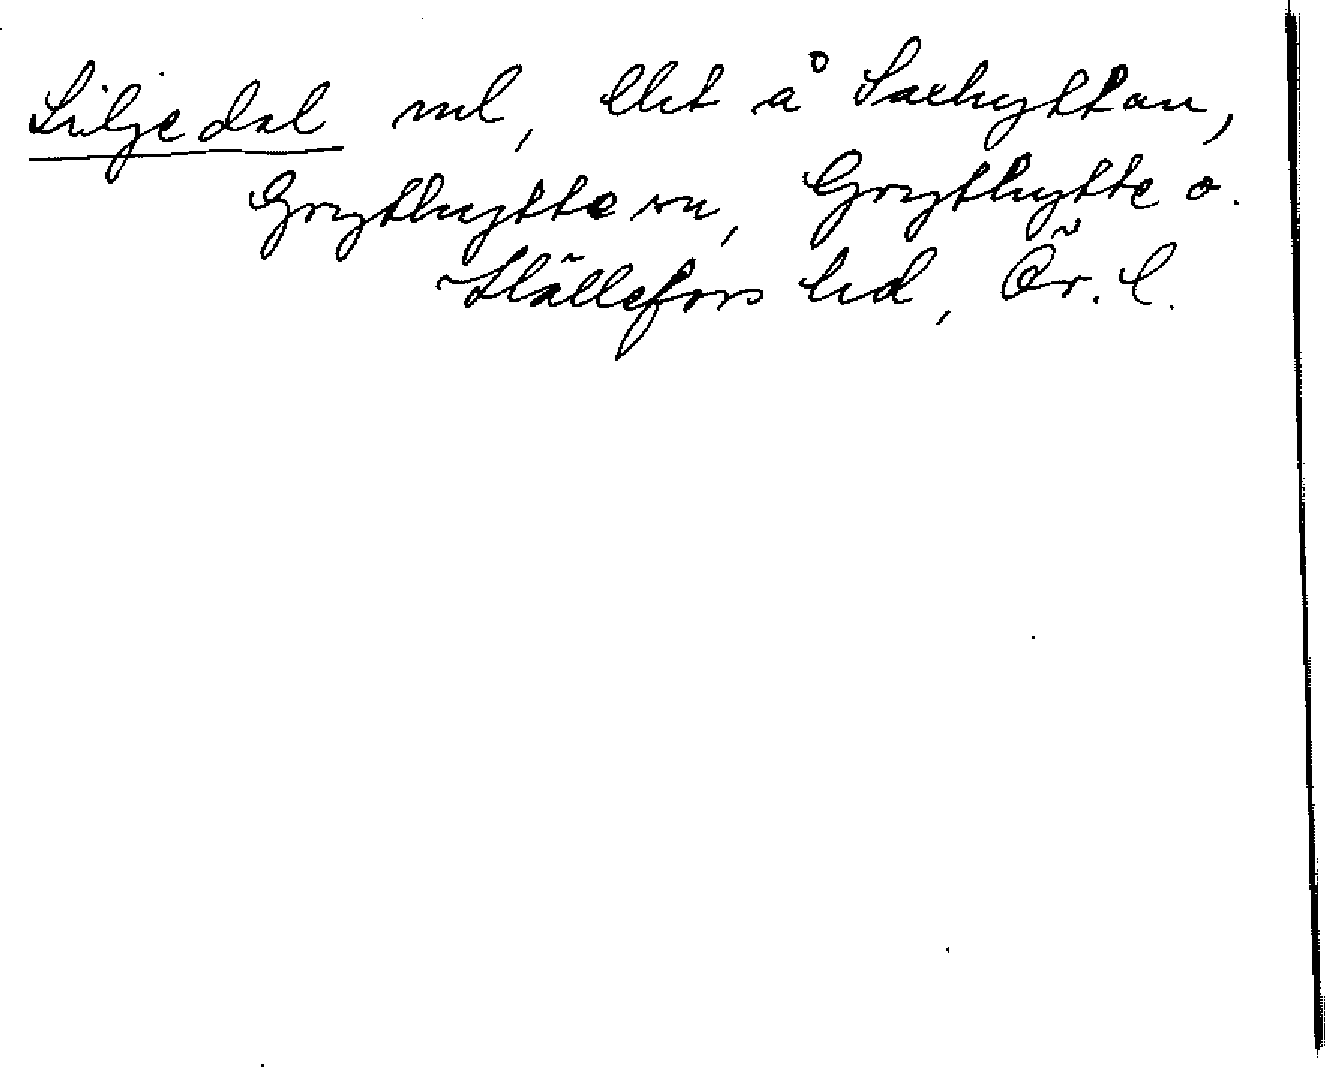 Liljedal vl, lht å Saxhyttan,
Grythytte sn, Grythytte o.
Hällefors hd, Ör. l.